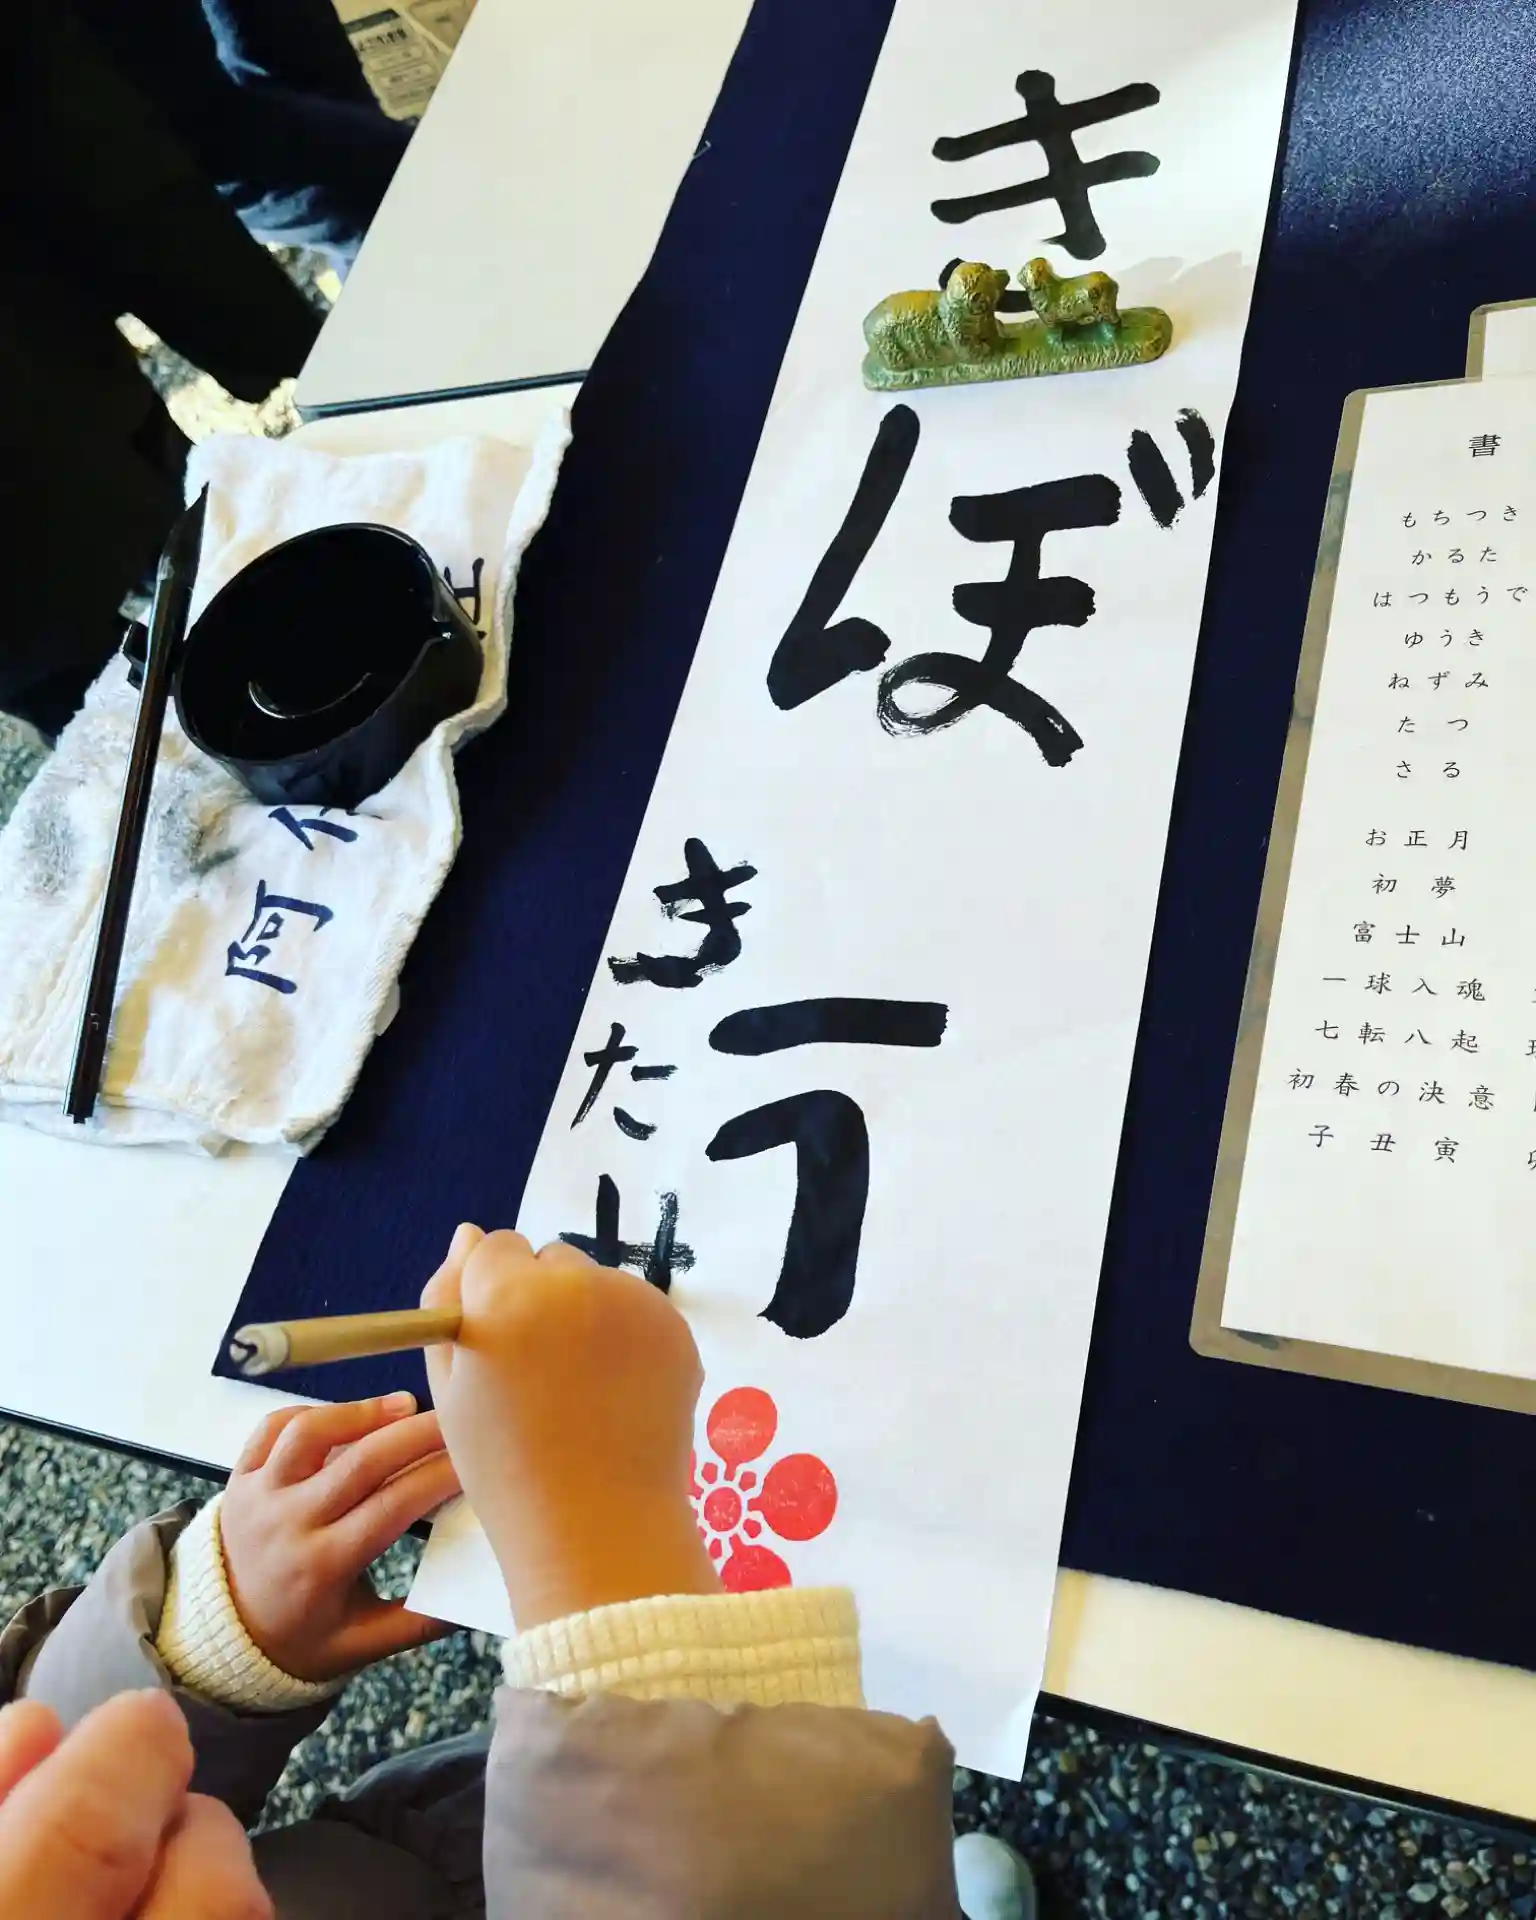 きぼう
きたサ
阿
書
もちつき
かるた
はつもうで
ゆうき
ねずみ
たつ
さる
お正月
初夢
富士山
一球入魂
七転八起
初春の決意
子丑寅